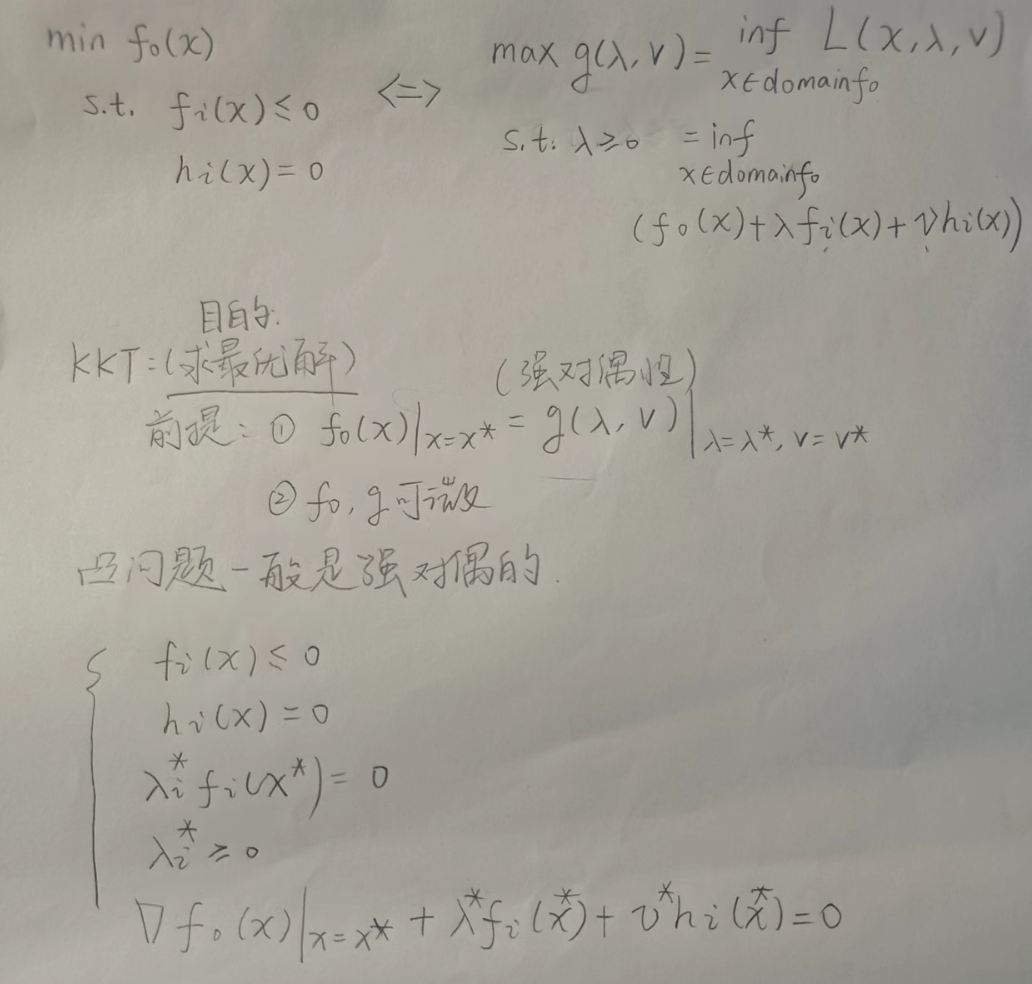 min f₀(x)
s.t. fᵢ(x) ≤ 0
hᵢ(x) = 0
<=>
max g(λ, ν) = inf L(x, λ, ν)
x∈domainf₀
s.t. λ ≥ 0 = inf
x∈domainf₀
(f₀(x) + λfᵢ(x) + νhᵢ(x))
目的:
KKT:(求最优解)
(强对偶性)
前提: ① f₀(x)|x=x* = g(λ, ν)|λ=λ*, ν=ν*
② f₀, g可微
凸问题一般是强对偶的.
{ fᵢ(x) ≤ 0
hᵢ(x) = 0
λᵢ* fᵢ(x*) = 0
λᵢ* ≥ 0
∇f₀(x)|x=x* + λ*fᵢ(x*) + ν*hᵢ(x*) = 0